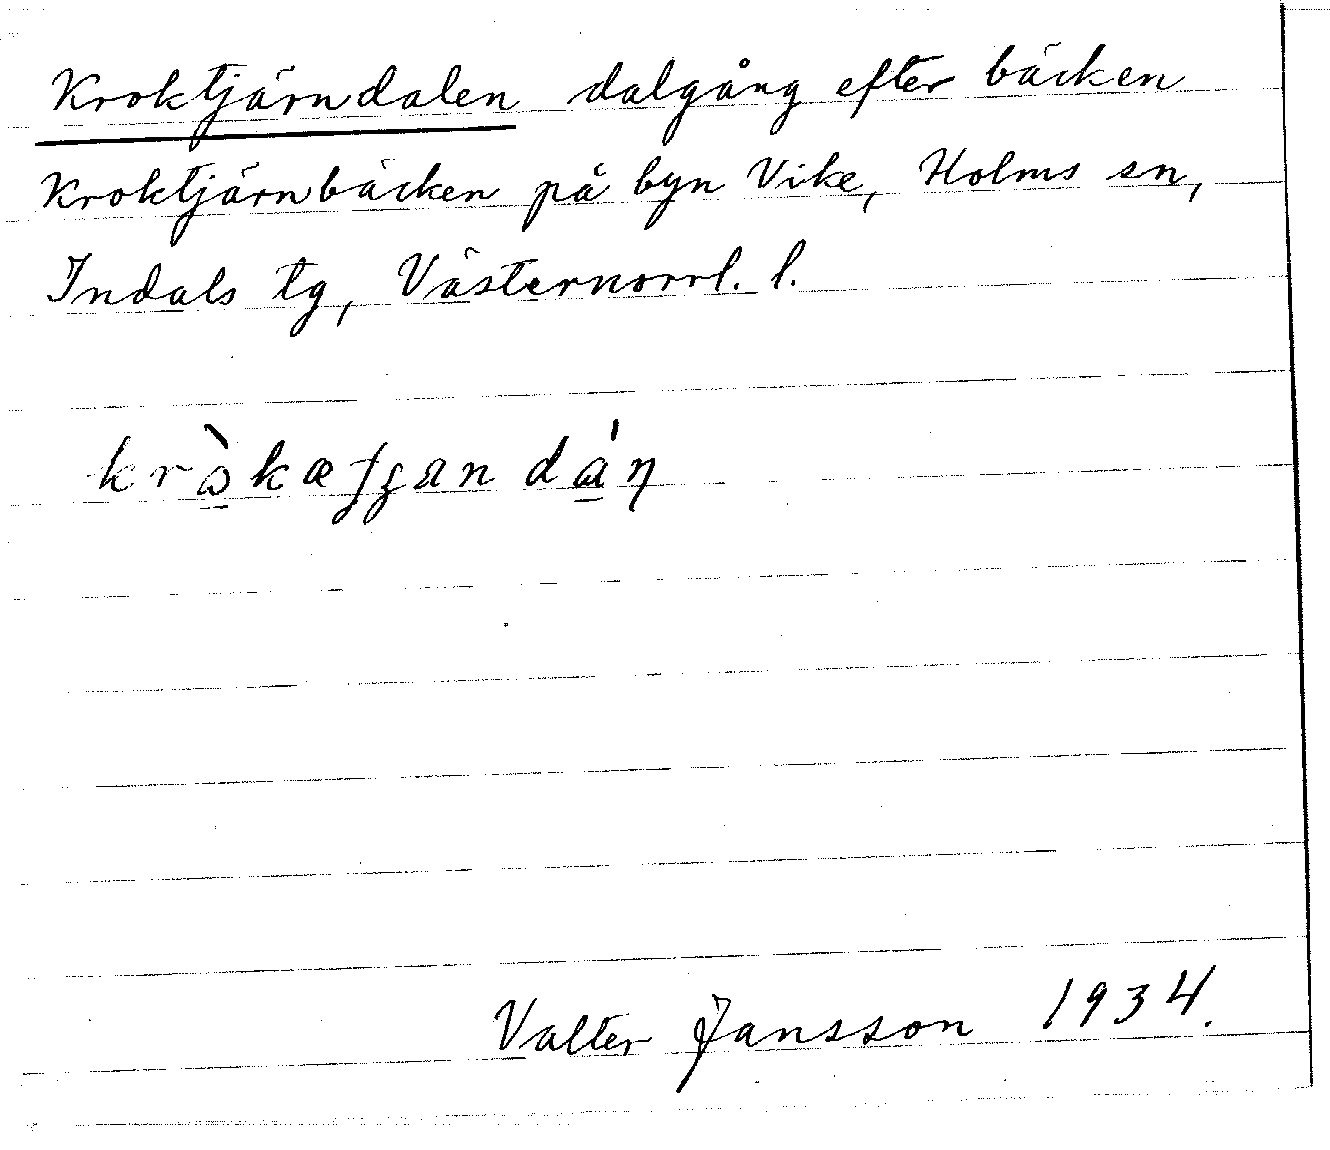 Kroktjärndalen dalgång efter bäcken
Kroktjärnbäcken på byn Vike, Holms sn,
Indals tg, Västernorrl. l.
Valter Jansson 1934.